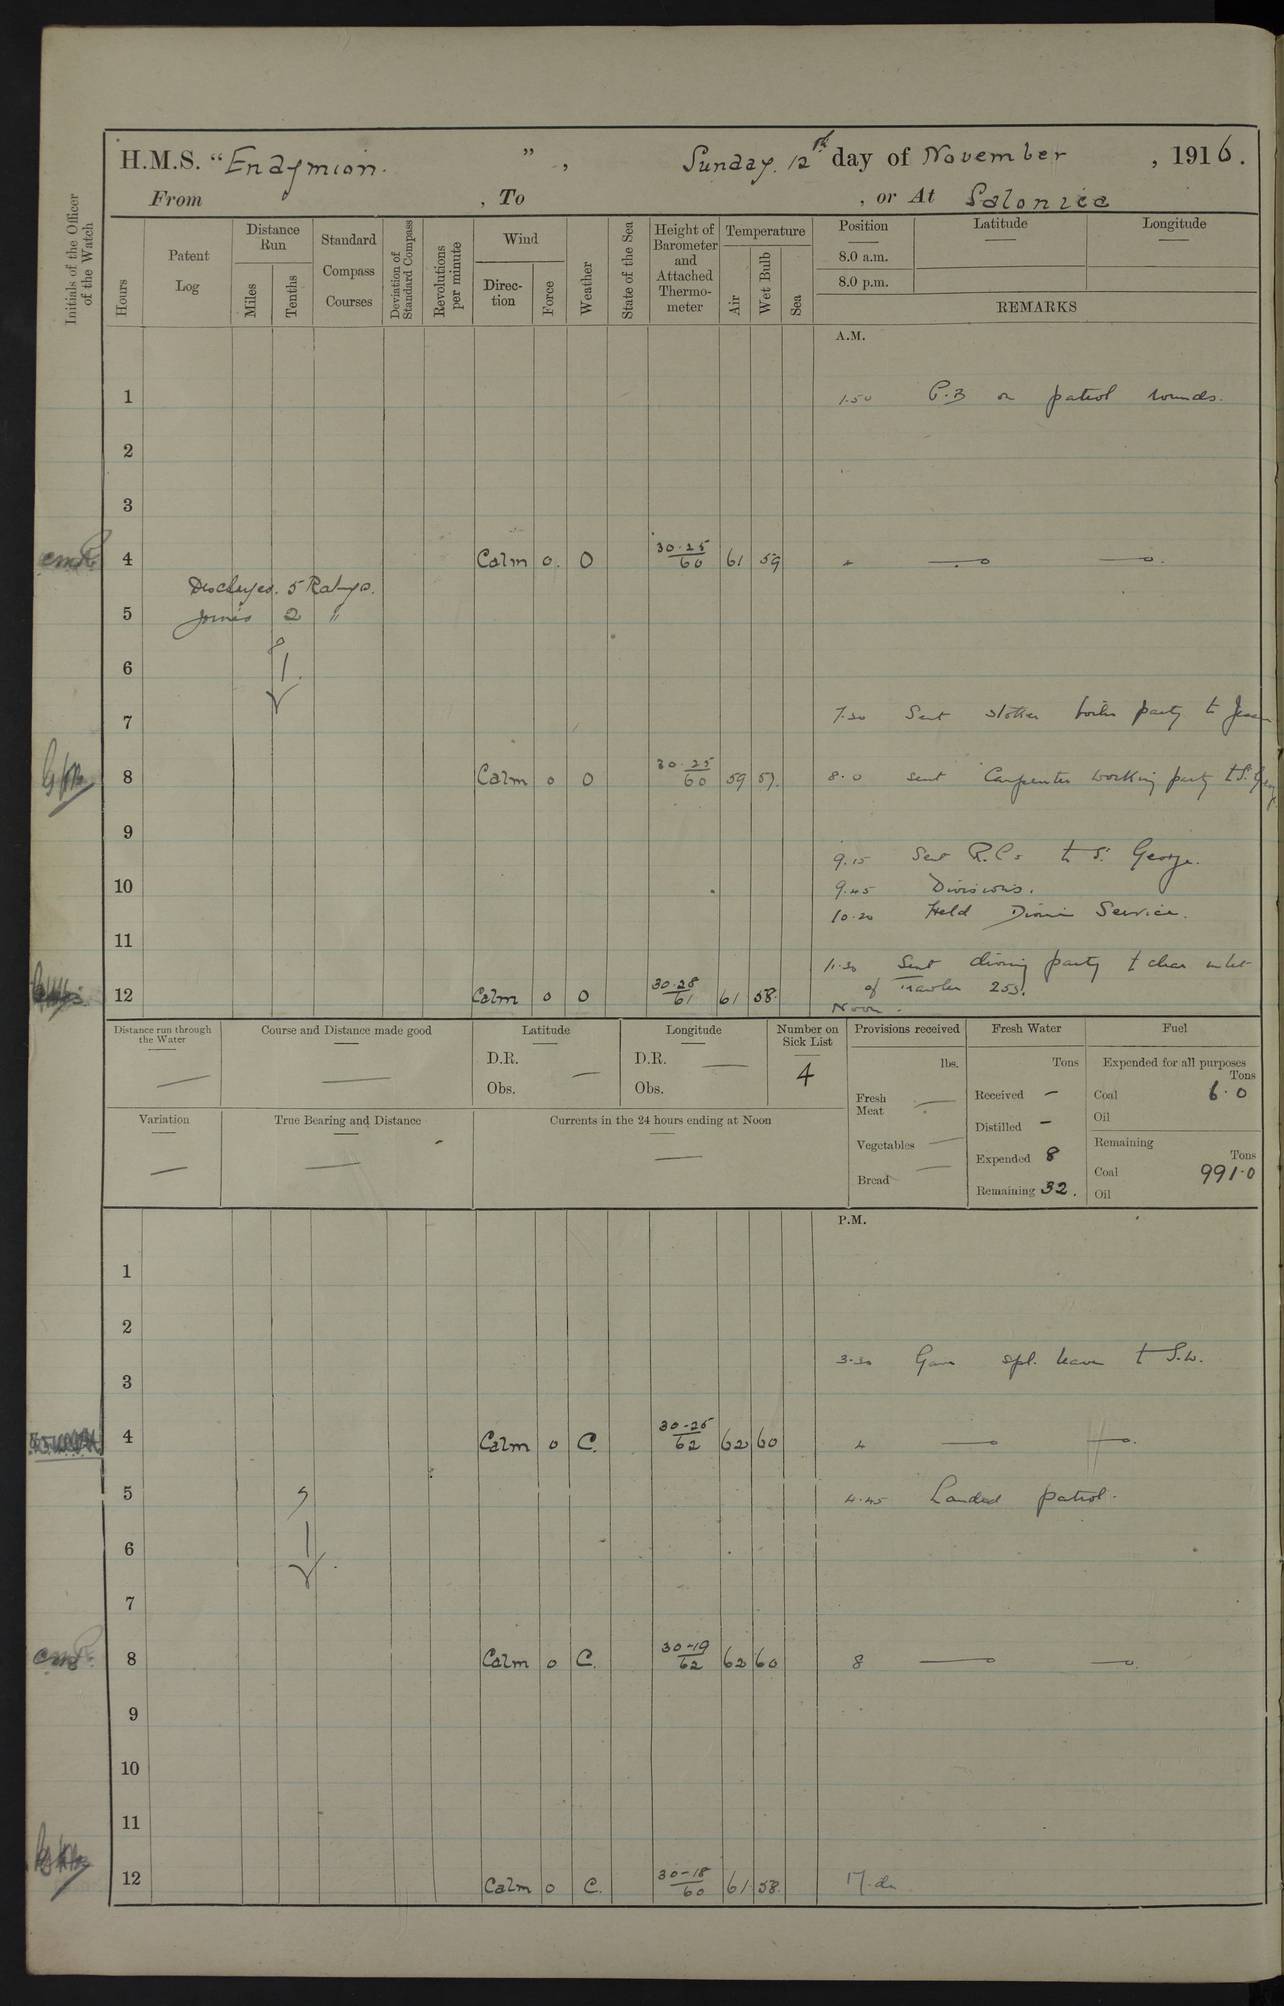 H.M.S. “Endymion. ” , Sunday. 12th day of November , 1916.
From , To , or At Salonica
Initials of the Officer of the Watch
Hours
Patent Log
Distance Run
Miles
Tenths
Standard Compass Courses
Deviation of Standard Compass
Revolutions per minute
Wind
Direction
Force
Weather
State of the Sea
Height of Barometer and Attached Thermometer
Temperature
Air
Wet Bulb
Sea
Position Latitude Longitude
8.0 a.m.
8.0 p.m.
REMARKS
A.M.
1 1.50 P.B on patrol rounds.
2
3
4 Calm 0. O 30.25/60 61 59 4
Discharged. 5 Ratings.
5 Joined 2 "
6
7 7.30 Sent stoker boiler party to
8 Calm 0 O 30.25/60 59 57. 8.0 sent Carpenter working party to St.
9
9.15 Sent R.Cs to St. George.
10 9.45 Divisions.
10.20 Held Divine Service.
11
11.30 Sent diving party to clear inlet
of Trawler 253.
12 Calm 0 O 30.28/61 61 58. Noon.
Distance run through the Water
Course and Distance made good
Latitude
D.R.
Obs.
Longitude
D.R.
Obs.
Number on Sick List
4
Provisions received
lbs.
Fresh Meat
Vegetables
Bread
Fresh Water
Tons
Received –
Distilled –
Expended 8
Remaining 32.
Fuel
Expended for all purposes
Tons
Coal 6.0
Oil
Remaining
Tons
Coal 991.0
Oil
Variation
True Bearing and Distance
Currents in the 24 hours ending at Noon
P.M.
1
2
3.30 Gave spl. leave to S.W.
3
4 Calm 0 C. 30-25/62 62 60 4
5 4.45 Landed patrol.
6
7
8 Calm 0 C. 30-19/62 62 60 8
9
10
11
12 Calm 0 C. 30-18/60 61 58.